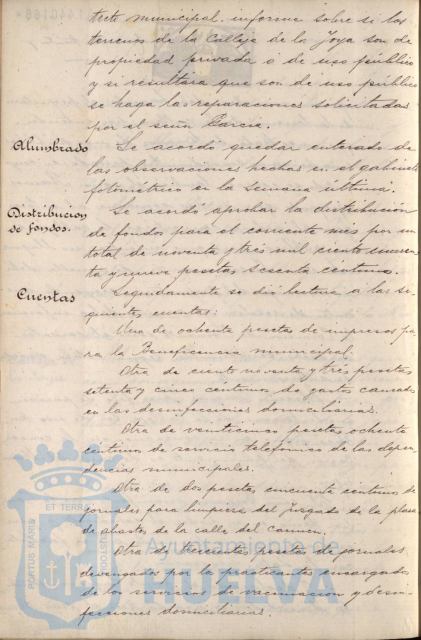 tecto municipal informe sobre si los
terrenos de la Calleja de la Joya son de
propiedad privada ó de uso público
y si resultára que son de uso público
se haga las reparaciones solicitadas
por el señor García.
Alumbrado Se acordó quedar enterado de
las observaciones hechas en el gabinete
fotométrico en la semana última.
Distribucion de fondos. Se acordó aprobar la distribución
de fondos para el corriente mes por un
total de noventa y tres mil ciento cuaren
ta y nueve pesetas sesenta céntimos.
Cuentas Seguidamente se dió lectura a las si
guientes cuentas:
Una de ochenta pesetas de impresos pa
ra la Beneficencia municipal.
Otra de ciento noventa y tres pesetas
setenta y cinco céntimos de gastos causados
en las desinfecciones domiciliarias.
Otra de veinticinco pesetas ochenta
céntimos de servicio telefónico de las depen
dencias municipales.
Otra de dos pesetas cincuenta céntimos de
jornales para limpieza del juzgado de la plaza
de abastos de la calle del Carmen.
Otra de pesetas de jornales
devengados por los practicantes encargados
de los servicios de vacunacion y desin
fecciones domiciliarias.
PORTUS MARIS ET TERRAE CUSTODIA
Ayuntamiento de
HUELVA